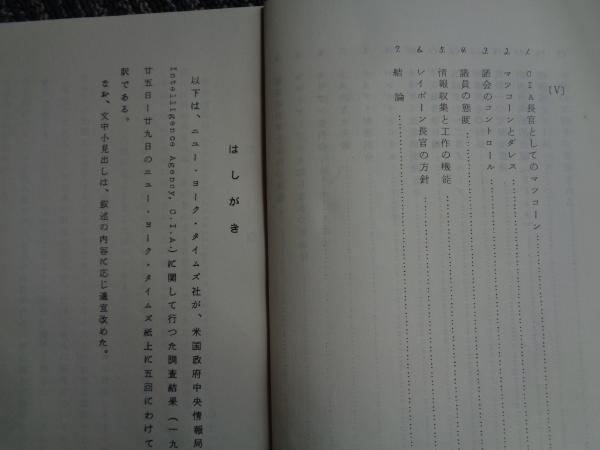 〔Ⅴ〕
1. CIA長官としてのマツコーン
2. マツコーンとダレス
3. 議会のコントロール
4. 議員の態度
5. 情報収集と工作の機能
6. レイボーン長官の方針
7. 結論
はしがき
以下は、ニュー・ヨーク・タイムズ社が、米国政府中央情報局
Intelligence Agency, C.I.A.)に関して行つた調査結果(一九
廿五日ー廿九日のニュー・ヨーク・タイムズ紙上に五回にわけて
訳である。
なお、文中小見出しは、叙述の内容に応じ適宜改めた。